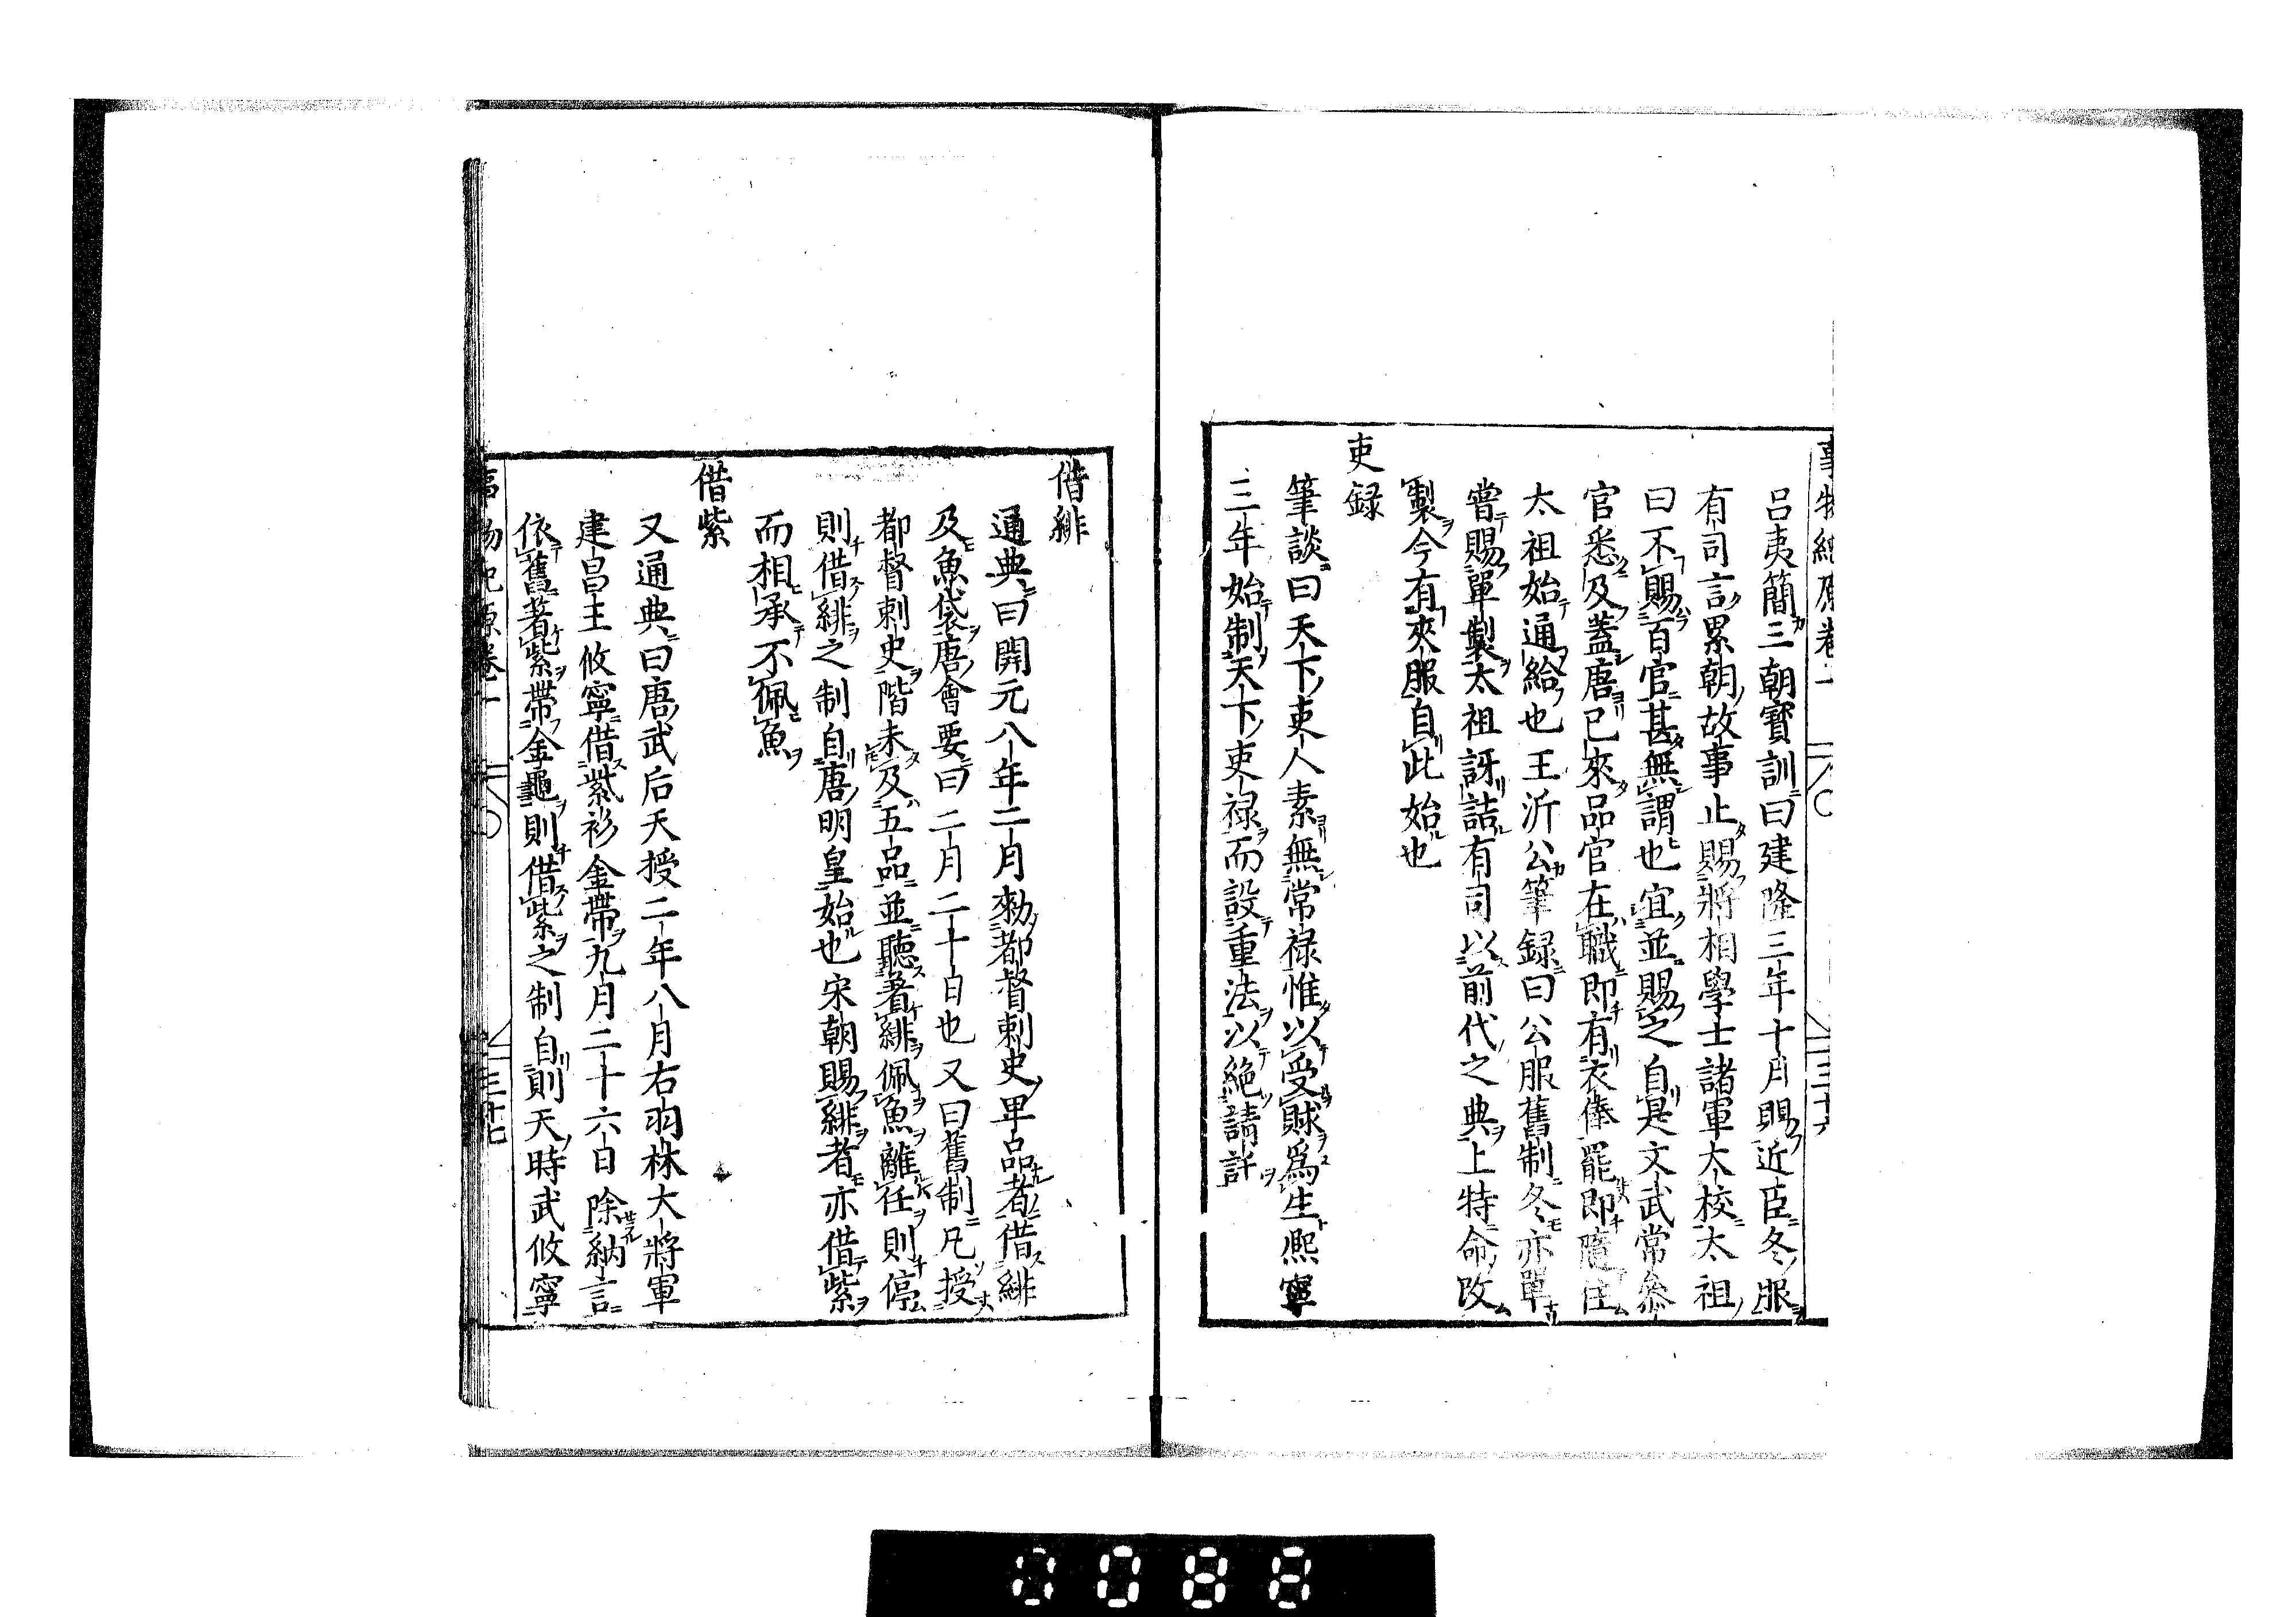 事物紀原卷一 三十六
呂夷簡三朝寶訓曰建隆三年十月賜近臣冬服
有司言累朝故事止賜將相學士諸軍大校太祖
曰不賜百官甚無謂也宜並賜之自是文武常參
官悉及蓋唐已來品官在職即有衣俸罷即隨住
太祖始通給也王沂公筆録曰公服舊制冬亦單
嘗賜單製太祖訝詰有司以前代之典上特命改
製今有夾服自此始也
吏録
筆談曰天下吏人素無常禄惟以受賕爲生熈寧
三年始制天下吏禄而設重法以絶請託
借緋
通典曰開元八年二月勑都督刺史卑品者借緋
及魚袋唐會要曰二月二十日也又曰舊制凡授
都督刺史階未及五品並聽著緋佩魚離任則停
則借緋之制自唐明皇始也宋朝賜緋者亦借紫
而相承不佩魚
借紫
又通典曰唐武后天授二年八月右羽林大將軍
建昌王攸寧借紫衫金帶九月二十六日除納言
依舊著紫帶金龜則借紫之制自則天時武攸寧
事物紀原卷一 三十七
0088